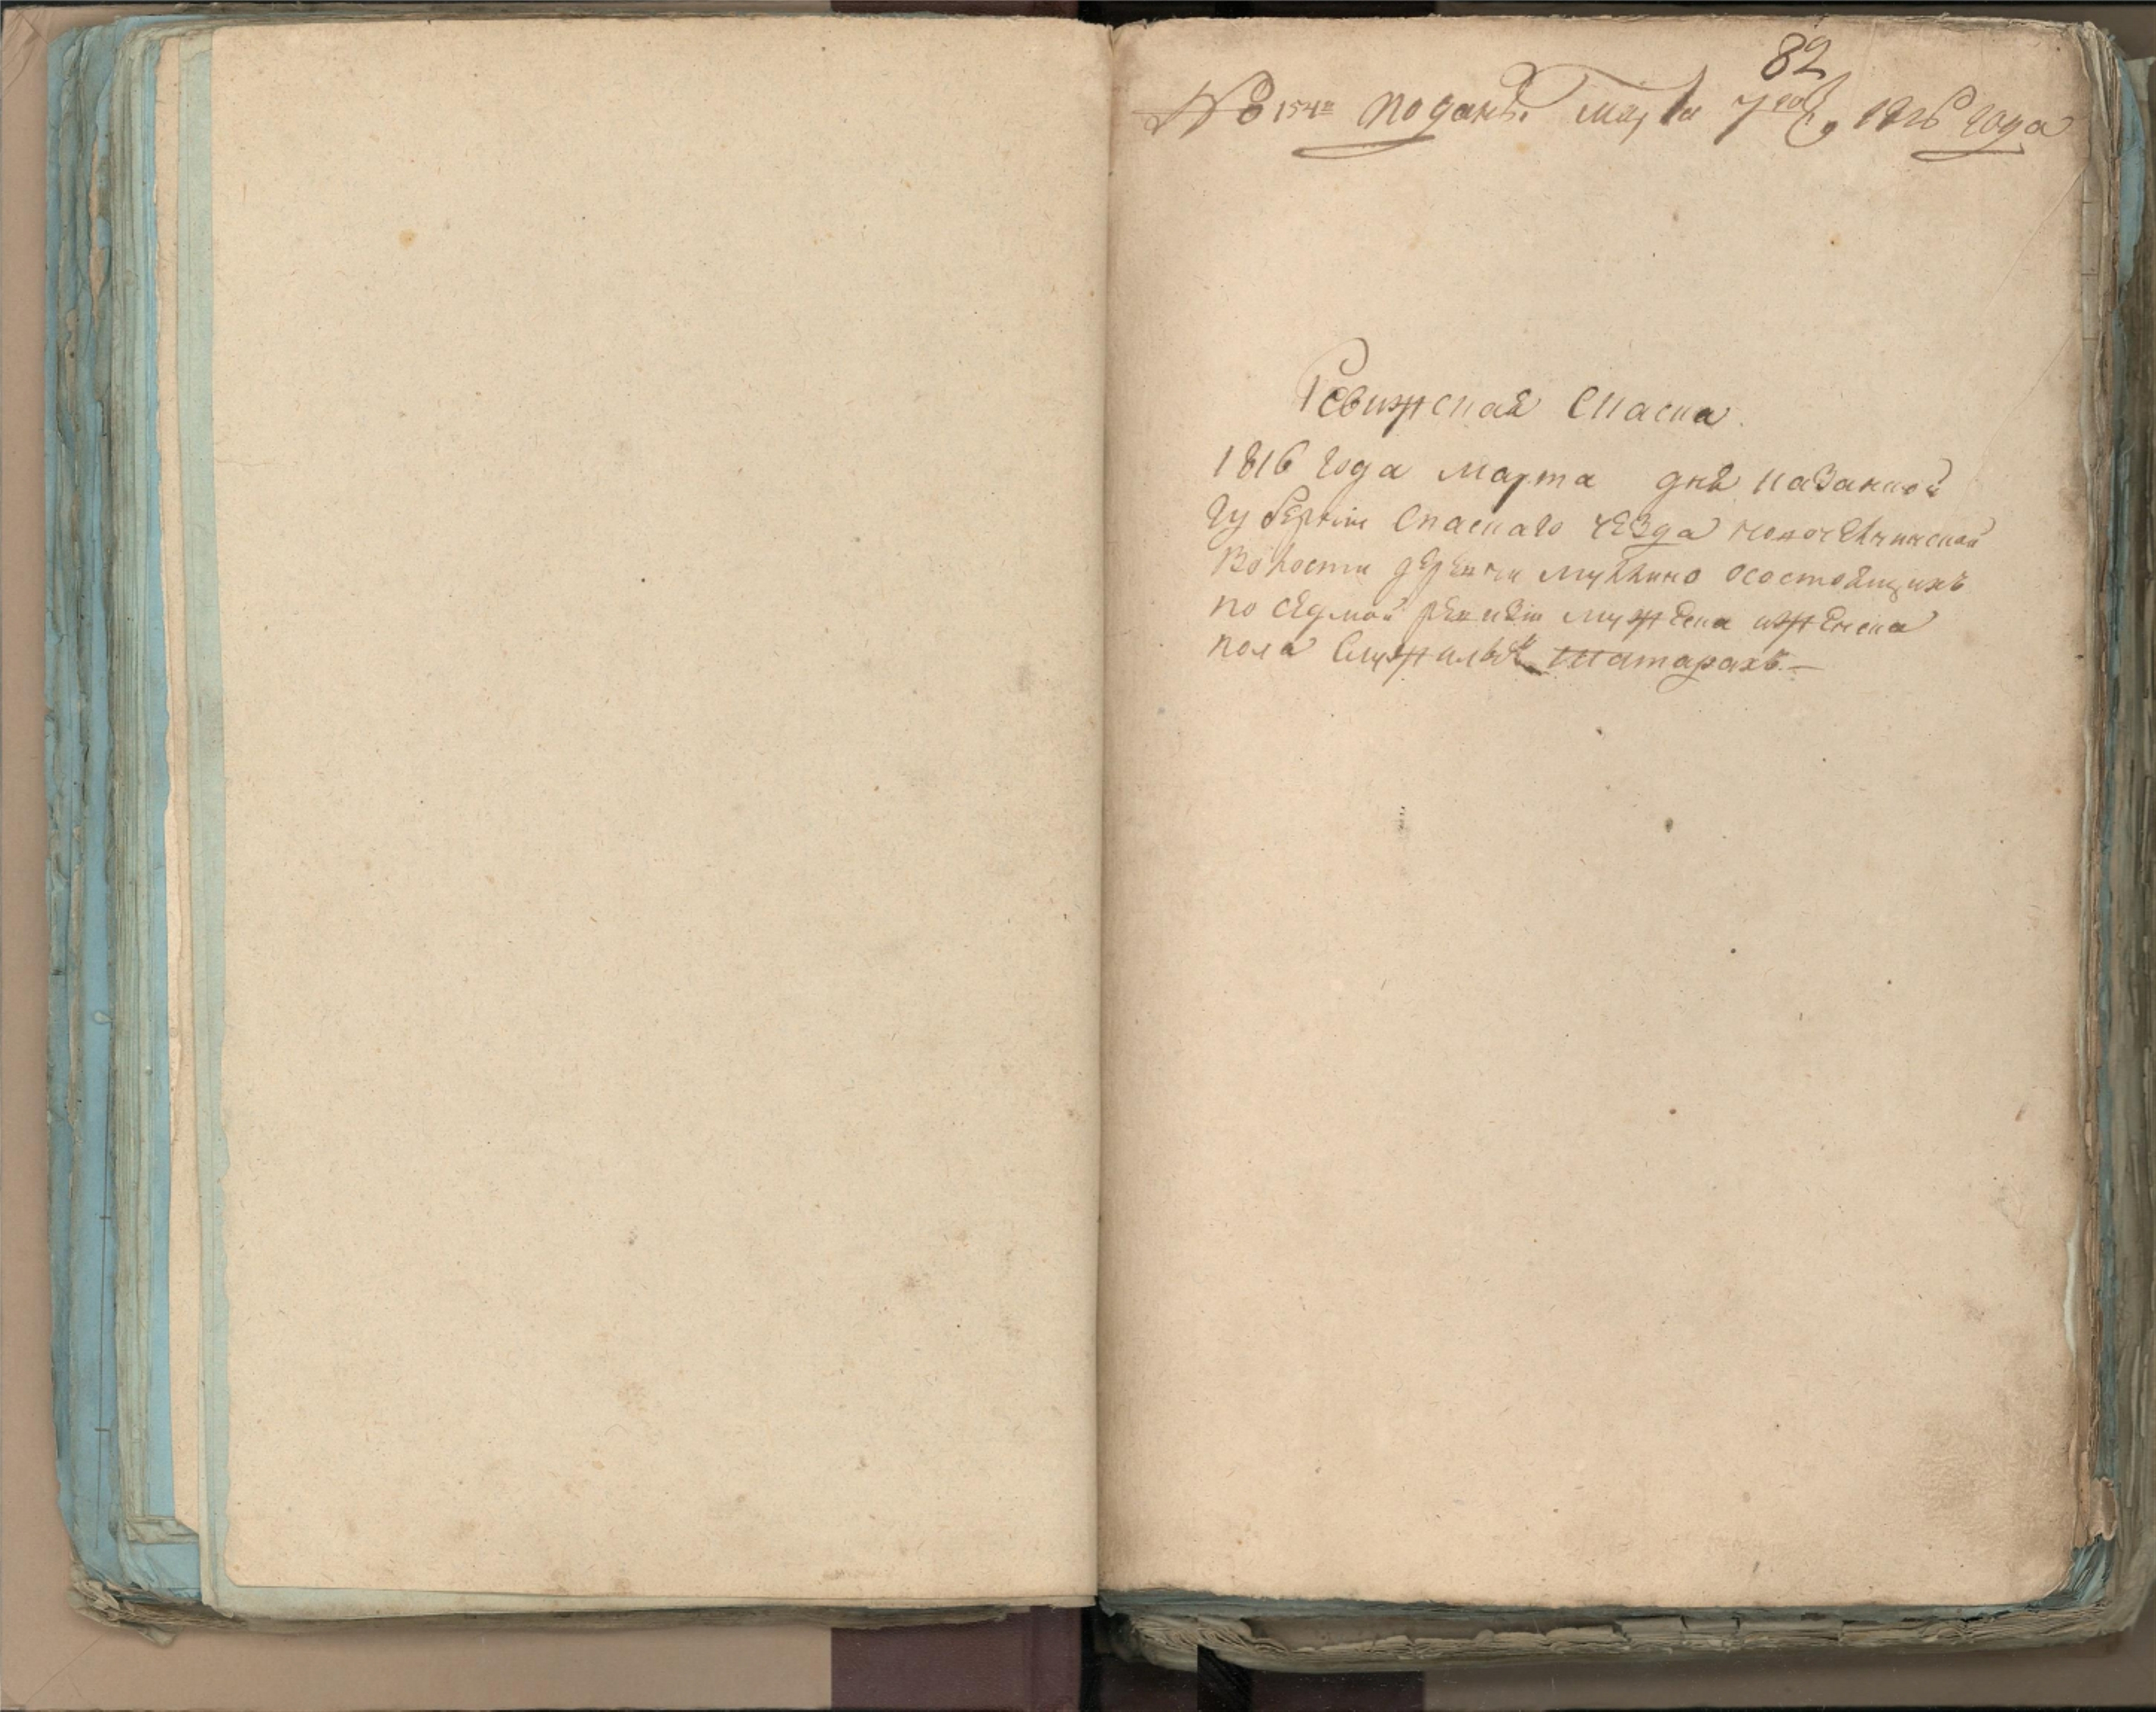 82
№ 154й поданъ марта 7го 1816 года
Ревижская Сказка
1816 года марта дня казанской
губернии Спаскаго уезда
волости деревни осостоящихъ
по седмой ревизии мужеска ижениска
пола Служилыхъ татарахъ.—